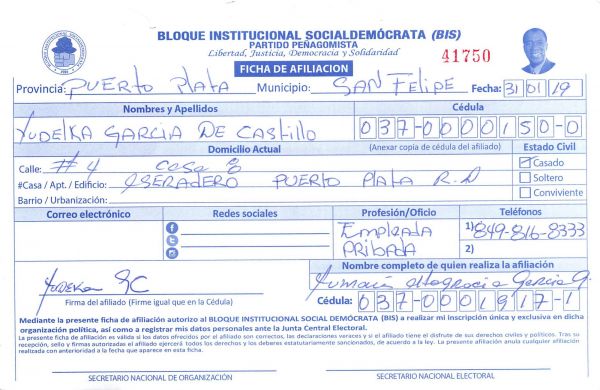 BLOQUE INSTITUCIONAL SOCIALDEMÓCRATA (BIS)
PARTIDO PEÑAGOMISTA
Libertad, Justicia, Democracia y Solidaridad
FICHA DE AFILIACION
41750
Provincia: PUERTO PLATA Municipio: SAN FELIPE Fecha: 31 01 19
Nombres y Apellidos Cédula
YUDELKA GARCIA DE CASTILLO 037-0000150-0
Domicilio Actual (Anexar copia de cédula del afiliado) Estado Civil
Calle: #4 casa 8 Casado
#Casa / Apt. / Edificio: PUERTO PLATA R.D Soltero
Barrio / Urbanización: Conviviente
Correo electrónico Redes sociales Profesión/Oficio Teléfonos
EMPLEADA 1) 849-816-8333
PRIBADA 2)
Nombre completo de quien realiza la afiliación
Yudelka GC Altagracia Garcia G.
Firma del afiliado (Firme igual que en la Cédula) Cédula: 037-0001917-1
Mediante la presente ficha de afiliación autorizo al BLOQUE INSTITUCIONAL SOCIAL DEMÓCRATA (BIS) a realizar mi inscripción única y exclusiva en dicha
organización política, así como a registrar mis datos personales ante la Junta Central Electoral.
La presente ficha de afiliación es válida si los datos ofrecidos por el afiliado son correctos, las declaraciones veraces y si el afiliado tiene el disfrute de sus derechos civiles y políticos. Tras su
recepción, sello y firmas autorizadas el afiliado ejercerá todos los derechos y los deberes estatutariamente sancionados, de acuerdo a la ley. La presente afiliación anula cualquier afiliación
realizada con anterioridad a la fecha que aparece en esta ficha.
SECRETARIO NACIONAL DE ORGANIZACIÓN SECRETARIO NACIONAL ELECTORAL